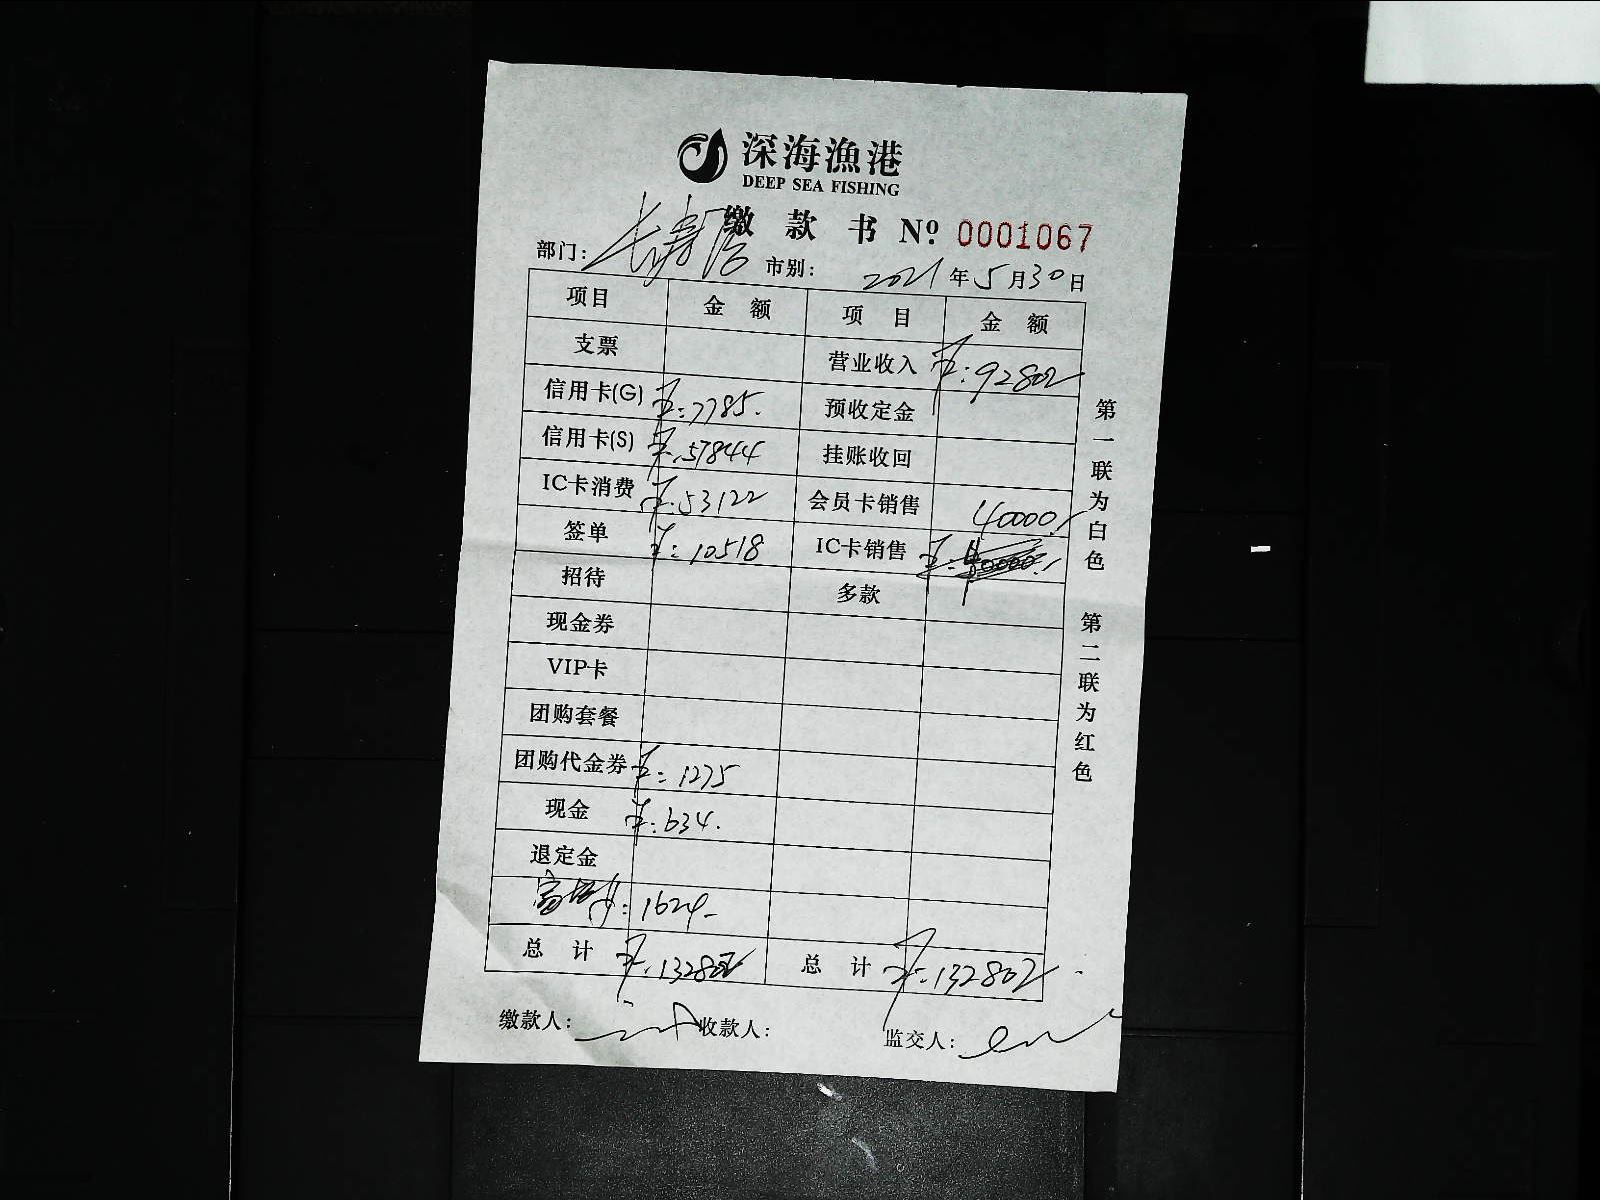 深海漁港
DEEP SEA FISHING
缴款书 Nº 0001067
部门: 市别: 2021年5月30日
项目 金额 项目 金额
支票 营业收入 ¥:92802
信用卡(G) ¥:7785. 预收定金
信用卡(S) ¥:57844 挂账收回
IC卡消费 ¥:53122 会员卡销售 40000
签单 ¥:10518 IC卡销售
招待 多款
现金券
VIP卡
团购套餐
团购代金券 ¥:1275
现金 ¥:634.
退定金
1624
总计 ¥:132802 总计 ¥:132802
缴款人: 收款人: 监交人:
第一联为白色 第二联为红色